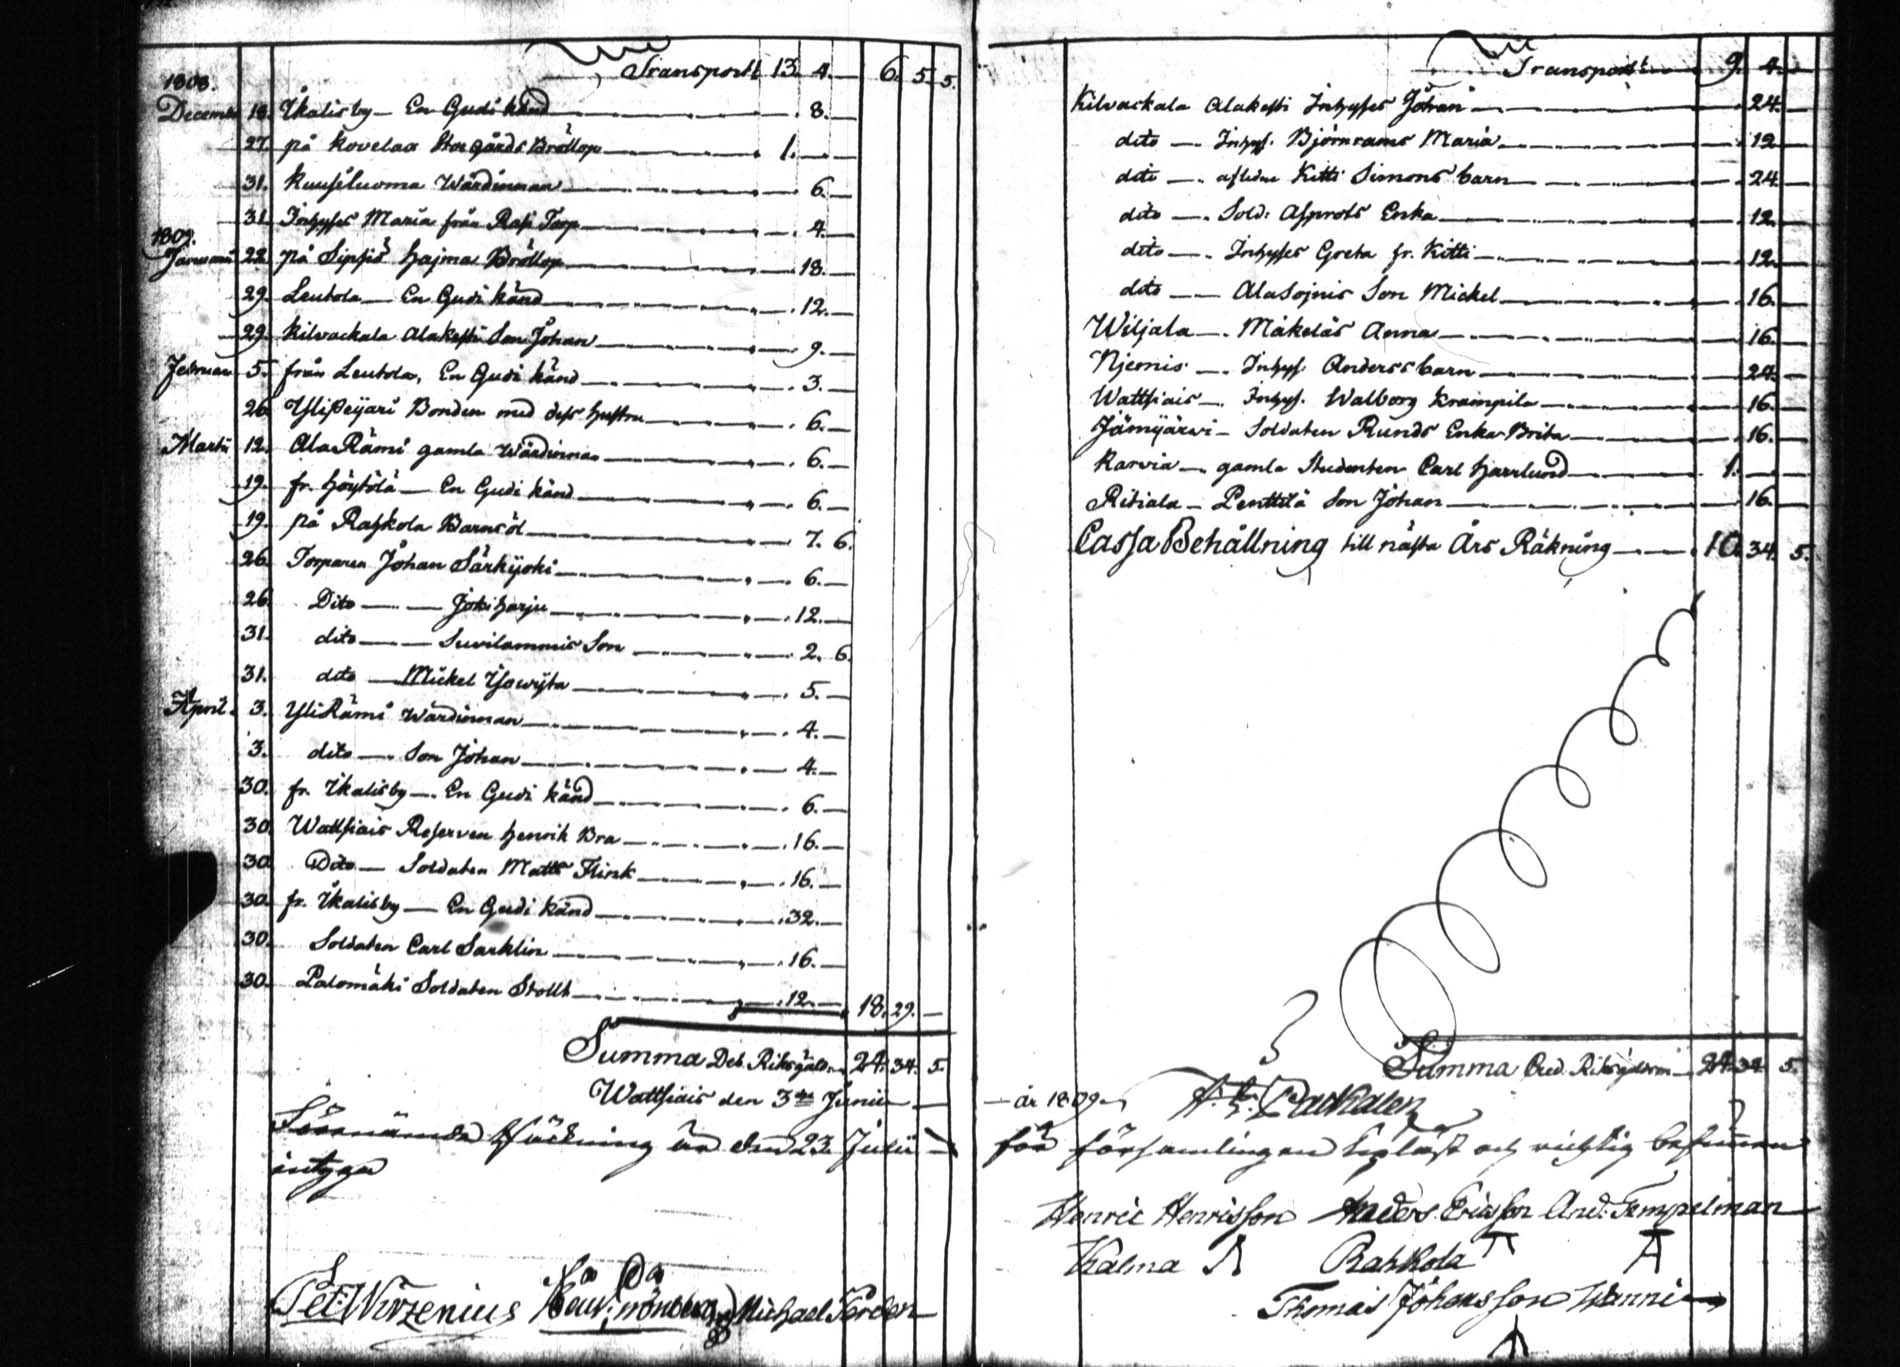 Transport 13. 4. — 6. 5. 5.
1808.
December 18. Ikalisby — En Gudi känd — 8. —
27. på Kovelax Storgårds Bröllop — 1. — —
31. Kuusiluoma Wärdinnan — 6. —
31. Inhyses Maria från Rasi Torp — 4. —
1809.
Januarii 22. på Sippis Hajma Bröllop — 18. —
29. Leutola — En Gudi känd — 12. —
29. Kilvackala Alakesti Son Johan — 9. —
Februarii 5. från Leutola, En Gudi känd — 3. —
26. Bonden med dess hustru — 6. —
Martii 12. AlaRämi gamla Wärdinnan — 6. —
19. fr. Höytölä — En Gudi känd — 6. —
19. på Rahkola Barnsöl — 7. 6.
26. Torparen Johan Särkijoki — 6. —
26. Dito — Jokiharju — 12. —
31. dito — Suvilammis Son — 2. 6.
31. dito — Mickel — 5. —
April. 3. YliRämi Wärdinnan — 4. —
3. dito — Son Johan — 4. —
30. fr. Ikalisby — En Gudi känd — 6. —
30. Wattsiais Reserven Henrik Bra — 16. —
30. Dito — Soldaten Matts Flink — 16. —
30. fr. Ikalisby — En Gudi känd — 32. —
30. Soldaten Carl Sarklin — 16. —
30. Palomäki Soldaten Stollt — 12. — 18. 29. —
Summa Deb. Riksgäld. 24. 34. 5.
Wattsiais den 3die Junii —
Förenämnde Räckning är den 23 Julii
intyga
Pet: Wirzenius Michael Forden
Transport 9. 4. —
Kilvackala Alakesti Inhyses Johan — 24. —
dito — Inhys. Björnrams Maria — 12 —
dito — aflidne Kitti Simons barn — 24 —
dito — Sold: Asprots Enka — 12. —
dito — Inhyses Greta fr. Kitti — 12. —
dito — AlaSojnis Son Mickel — 16. —
Wiljala — Mäkeläs Anna — 16. —
Njemis — Inhys. Anders barn — 24. —
Wattsiais — Inhys. Walborg Krampila — 16. —
Jämijärvi — Soldaten Runds Enka Brita — 16. —
Karvia — gamla Studenten Carl Hjarrlund — 1. — —
Ritiala — Penttilä Son Johan — 16. —
Cassa Behållning till nästa Års Räkning — 10. 34. 5.
Summa Cred. Riksgäld 24. 34 5.
— år 1809
för församlingen upläst och richtig befunnen
Henric Henrisson Anders Ericsson And: Tempelman
Kalma Rahkola
Thomas Johansson